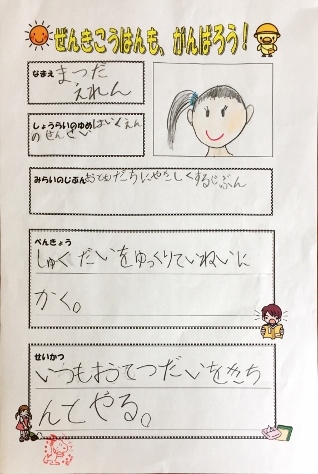 ぜんきこうはんも、がんばろう!
なまえ まつだ
えれん
しょうらいのゆめ ほいくえん
の せんせい
みらいのじぶん おともだちにやさしくするじぶん
べんきょう
しゅくだいをゆっくりていねいに
かく。
せいかつ
いつもおうてつだいをきち
んとやる。